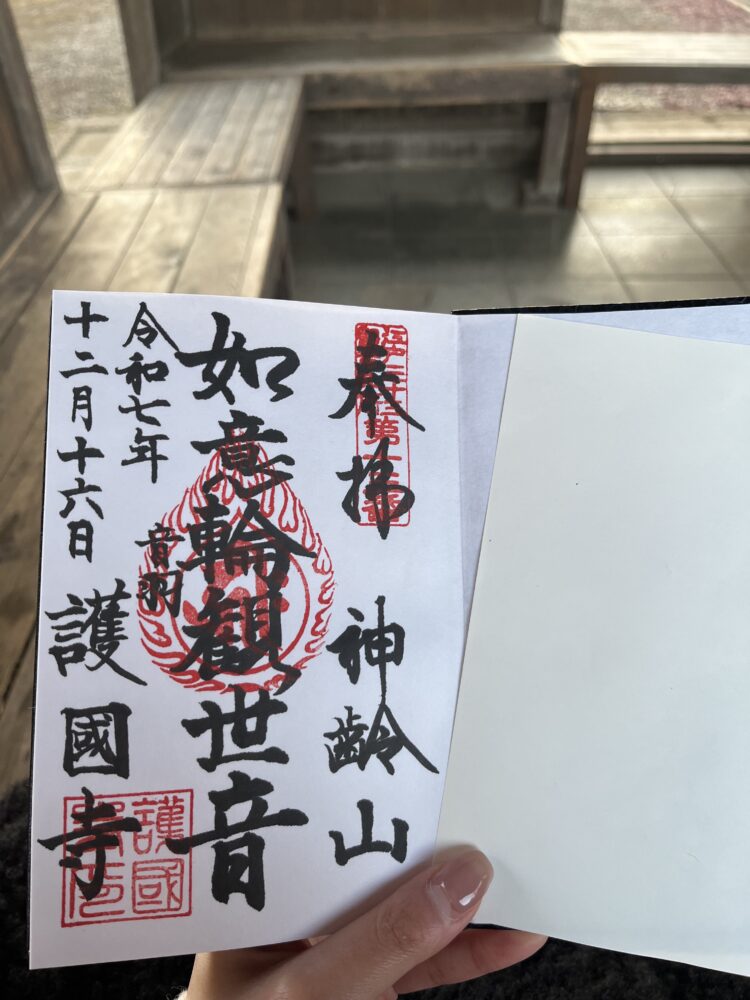 奉拝 神齢山
如意輪観世音
令和七年
音羽
十二月十六日
護國寺
護國寺印